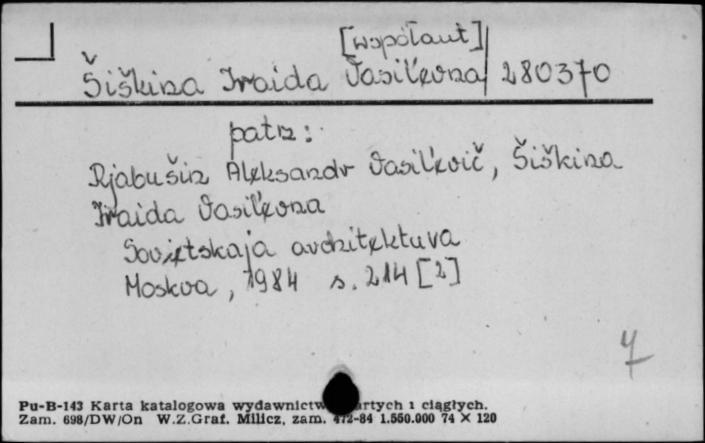 [współaut]
Šiškina Iraida Vasil'evna 280370
patrz:
Rjabušin Aleksandr Vasil'evič, Šiškina
Iraida Vasil'evna
Sovetskaja architektura
Moskva, 1984 s. 214 [2]
4
Pu-B-143 Karta katalogowa wydawnictw artych i ciągłych.
Zam. 698/DW/On W.Z.Graf. Milicz, zam. 472-84 1.550.000 74 X 120